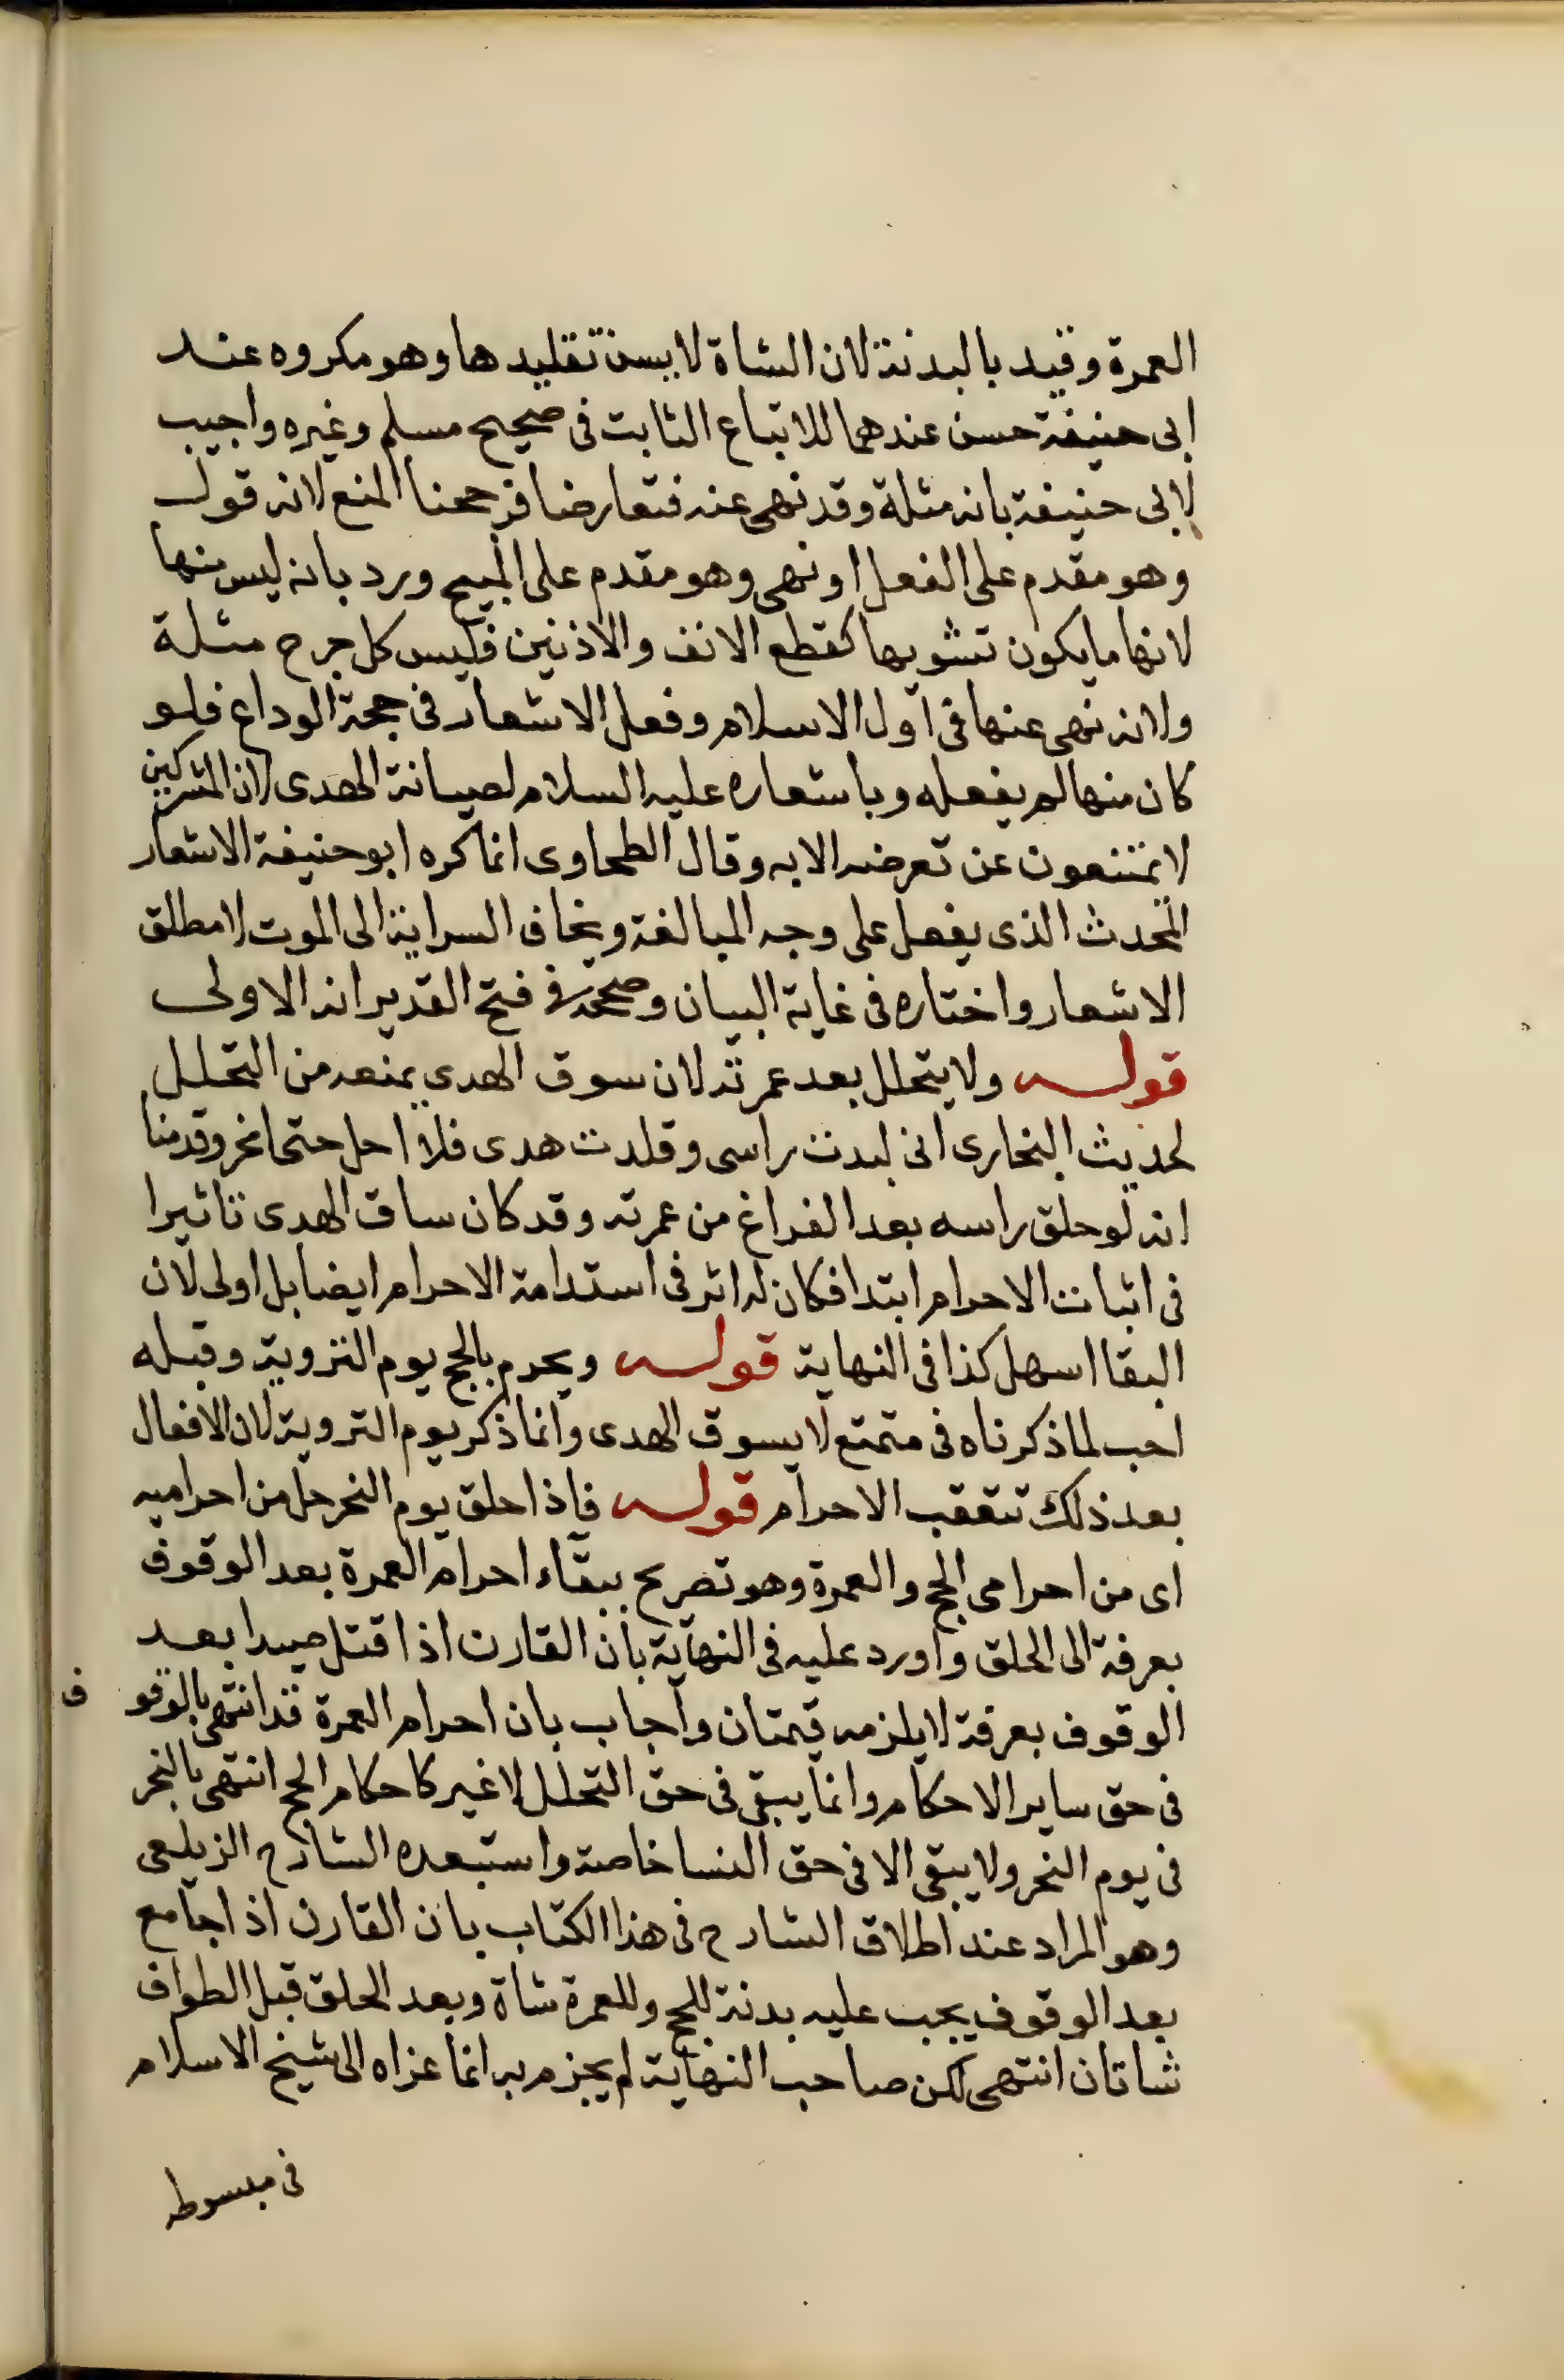 العمرة وقيد بالبدنة لان الشاة لا يسن تقليدها وهو مكروه عند
ابى حنيفة حسن عندهما للاتباع الثابت فى صحيح مسلم وغيره واجيب
لابى حنيفة بانه مثلة وقد نهى عنه فتعارضا فرجحنا المنع لانه قول
وهو مقدم على الفعل او نهى وهو مقدم على المبيح ورد بانه ليس منها
لانها ما يكون تشويها كقطع الانف والاذنين فليس كل جرح مثلة
ولانه نهى عنها فى اول الاسلام وفعل الاشعار فى حجة الوداع فلو
كان منها لم يفعله وباشعاره عليه السلام لصيانة الهدى لان المشركين
لا يمتنعون عن تعرضه الا به وقال الطحاوى انما كره ابو حنيفة الاشعار
المحدث الذى يفعل على وجه المبالغة ويخاف السراية الى الموت لا مطلق
الاشعار واختاره فى غاية البيان وصححه فى فتح القدير انه الاولى
قوله ولا يتحلل بعد عمرته لان سوق الهدى يمنعه من التحلل
لحديث البخارى انى لبدت راسى وقلدت هدى فلا احل حتى انحر وقدمنا
انه لو حلق راسه بعد الفراغ من عمرته وقد كان ساق الهدى تاثيرا
فى اثبات الاحرام ابتدا فكان له اثر فى استدامة الاحرام ايضا بل اولى لان
البقا اسهل كذا فى النهاية قوله ويحرم بالحج يوم التروية وقبله
احب لما ذكرناه فى متمتع لا يسوق الهدى وانما ذكر يوم التروية لان الافعال
بعد ذلك تتعقب الاحرام قوله فاذا حلق يوم النحر حل من احراميه
اى من احرامى الحج والعمرة وهو تصريح ببقاء احرام العمرة بعد الوقوف
بعرفة الى الحلق واورد عليه فى النهاية بان القارن اذا قتل صيدا بعد
الوقوف بعرفة لا يلزمه قيمتان واجاب بان احرام العمرة قد انتهى بالوقوف
فى حق ساير الاحكام وانما يبقى فى حق التحلل لا غير كاحكام الحج انتهى بالنحر
فى يوم النحر ولا يبقى الا فى حق النسا خاصة واستبعده الشارح الزيلعى
وهو المراد عند اطلاق الشارح فى هذا الكتاب بان القارن اذا جامع
بعد الوقوف يجب عليه بدنة للحج وللعمرة شاة وبعد الحلق قبل الطواف
شاتان انتهى لكن صاحب النهاية لم يجزم به انما عزاه الى شيخ الاسلام
فى مبسوطه